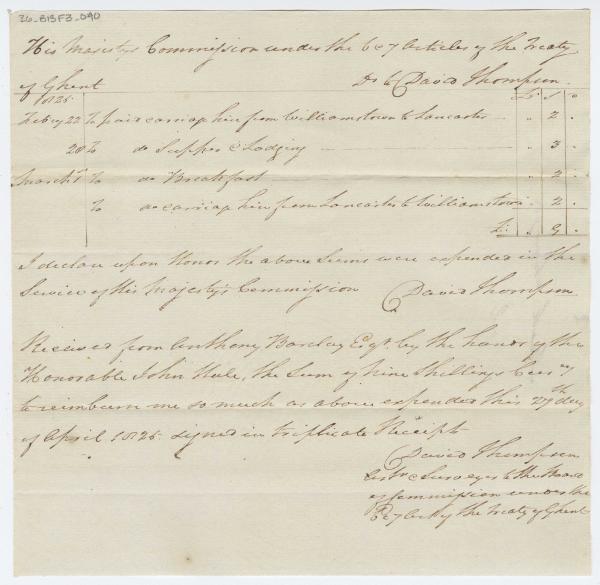 26-B13F3-090
His Majestys Commission under the 6 & 7 Articles of the Treaty
of Ghent Dr to David Thompson
1825. £ S D
Feby 22 To paid carriage hire from Williamstown to Lancaster — " 2 "
28 To do Supper & Lodging — " 3 "
March 1 To do Breakfast — " 2 "
To do carriage hire from Lancaster to Williamstown " 2 "
£: " 9 "
I declare upon Honor the above Sums were expended in the
Service of His Majesty's Commission David Thompson
Received from Anthony Barclay Esqr by the hands of the
Honorable John Hale, the Sum of Nine Shillings Ccy
to reimburse me so much as above expended this 27th day
of April 1825. signed in triplicate Receipts
David Thompson
Astr & Surveyor to the Board
of Commission under the
6 & 7 Art of the Treaty of Ghent